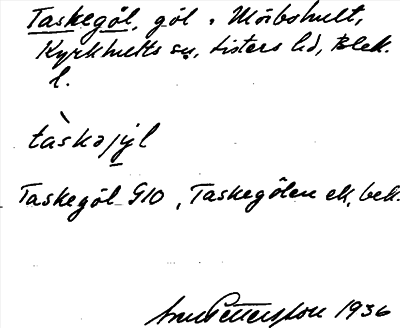 Taskegöl, göl, Mörbshult,
Kyrkhults sn, Listers hd, Blek.
l.
tàskəjyl
Taskegöl G10, Taskegölen ek, bek.
Pettersson 1936